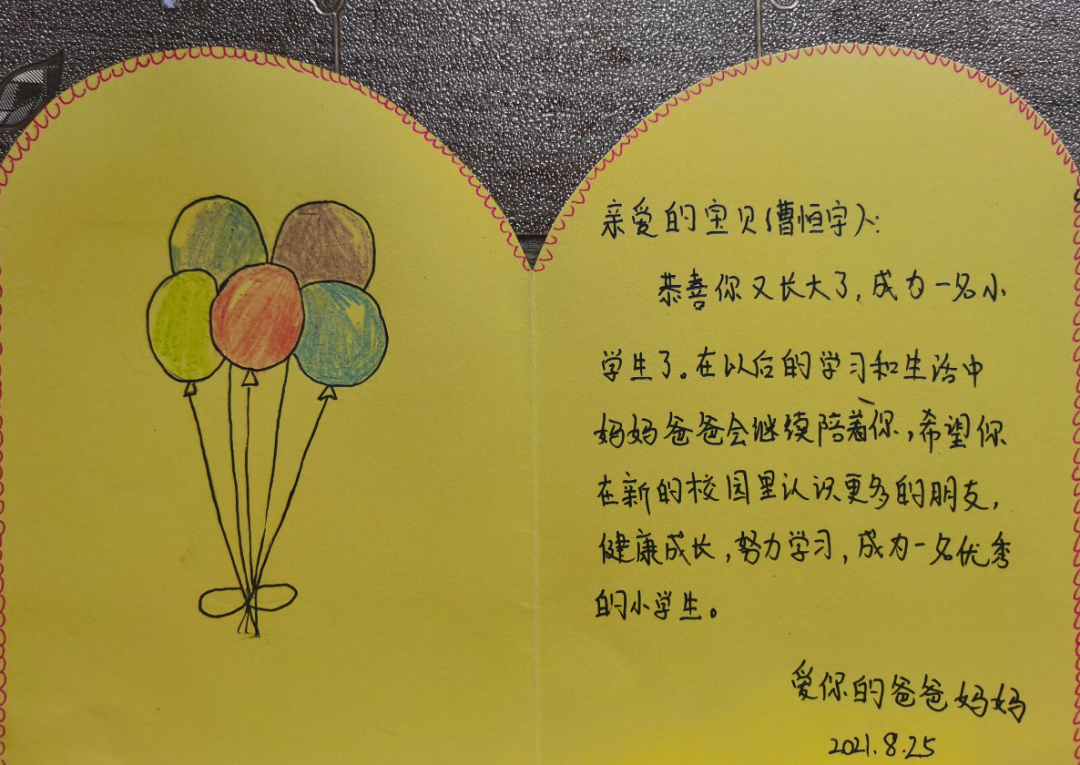 亲爱的宝贝(曹恒宇):
恭喜你又长大了,成为一名小
学生了。在以后的学习和生活中
妈妈爸爸会继续陪着你,希望你
在新的校园里认识更多的朋友,
健康成长,努力学习,成为一名优秀
的小学生。
爱你的爸爸妈妈
2021.8.25